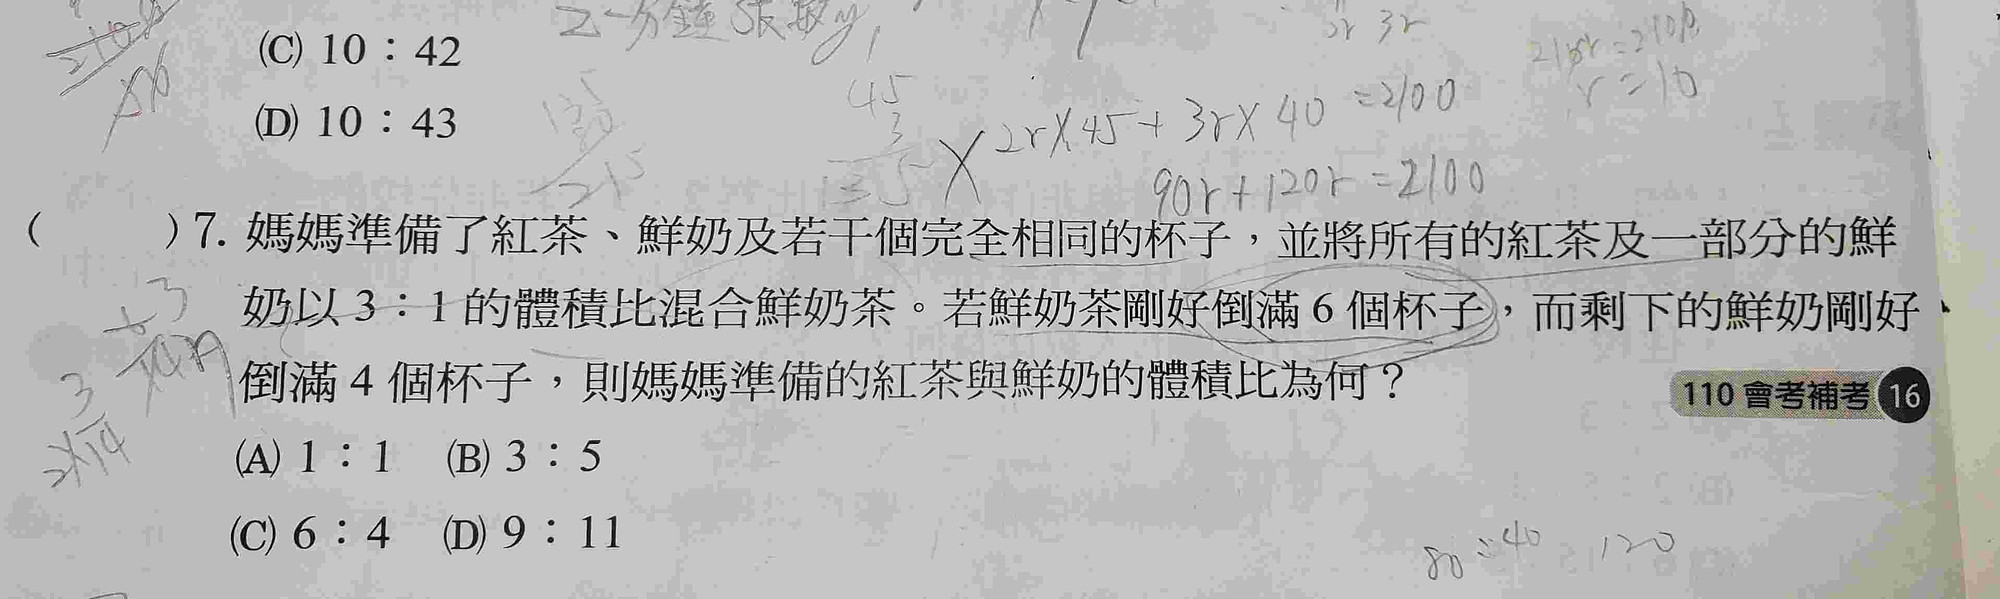 (C) 10：42
(D) 10：43
45
3
135
2r 3r
r=10
2r×45+3r×40=2100
90r+120r=2100
( )7. 媽媽準備了紅茶、鮮奶及若干個完全相同的杯子，並將所有的紅茶及一部分的鮮
奶以 3：1 的體積比混合鮮奶茶。若鮮奶茶剛好倒滿 6 個杯子，而剩下的鮮奶剛好
倒滿 4 個杯子，則媽媽準備的紅茶與鮮奶的體積比為何？
110 會考補考 16
(A) 1：1 (B) 3：5
(C) 6：4 (D) 9：11
80÷40 120